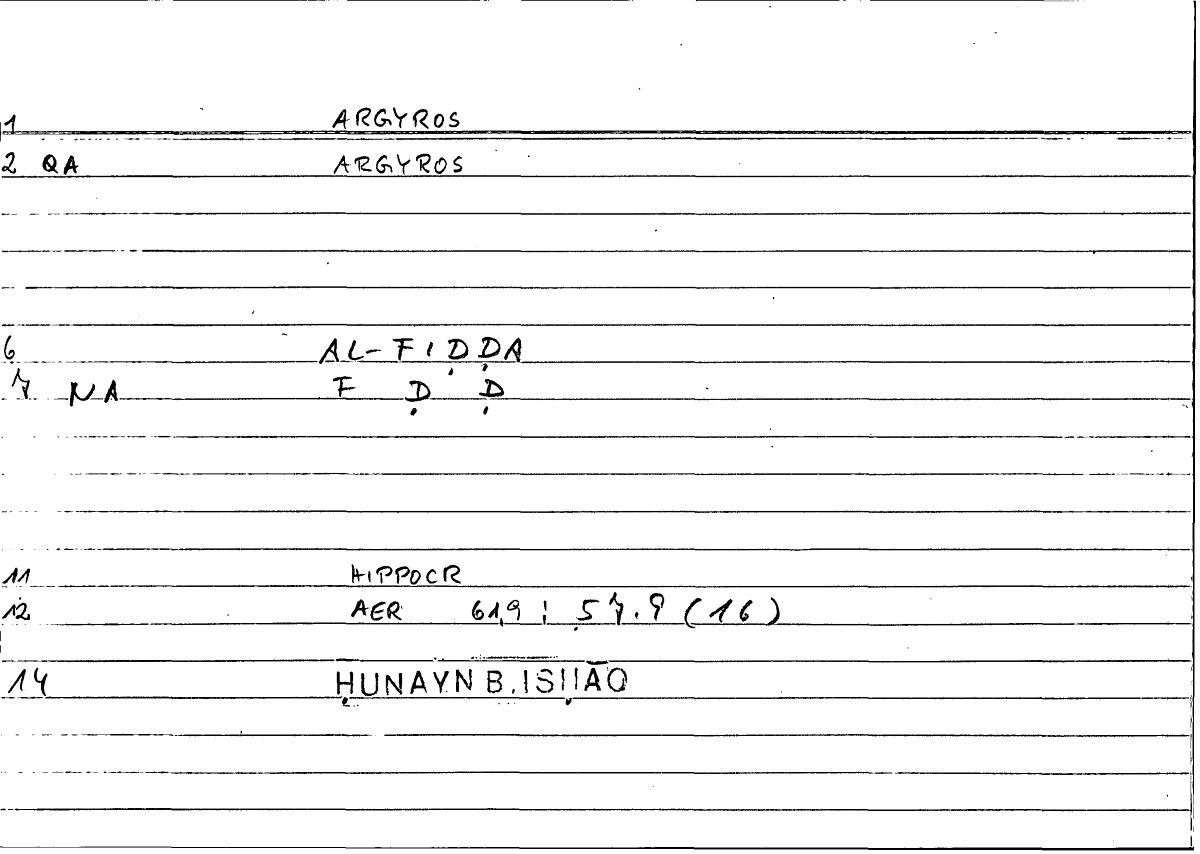 1 ARGYROS
2 QA ARGYROS
6 AL-FIḌḌA
7 NA F Ḍ Ḍ
11 HIPPOCR
12 AER 61,9 ; 57.9 (16)
14 ḤUNAYN B. ISḤĀQ